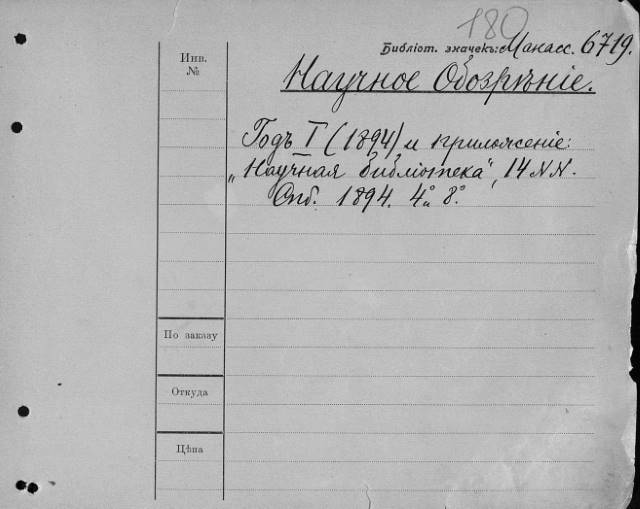 180
Библіот. значекъ: Манасс. 6719.
Инв.
№
Научное Обозрѣніе.
Годъ I (1894) и приложеніе:
„Научная библіотека", 14 NN.
Спб. 1894. 4° и 8°.
По заказу
Откуда
Цѣна